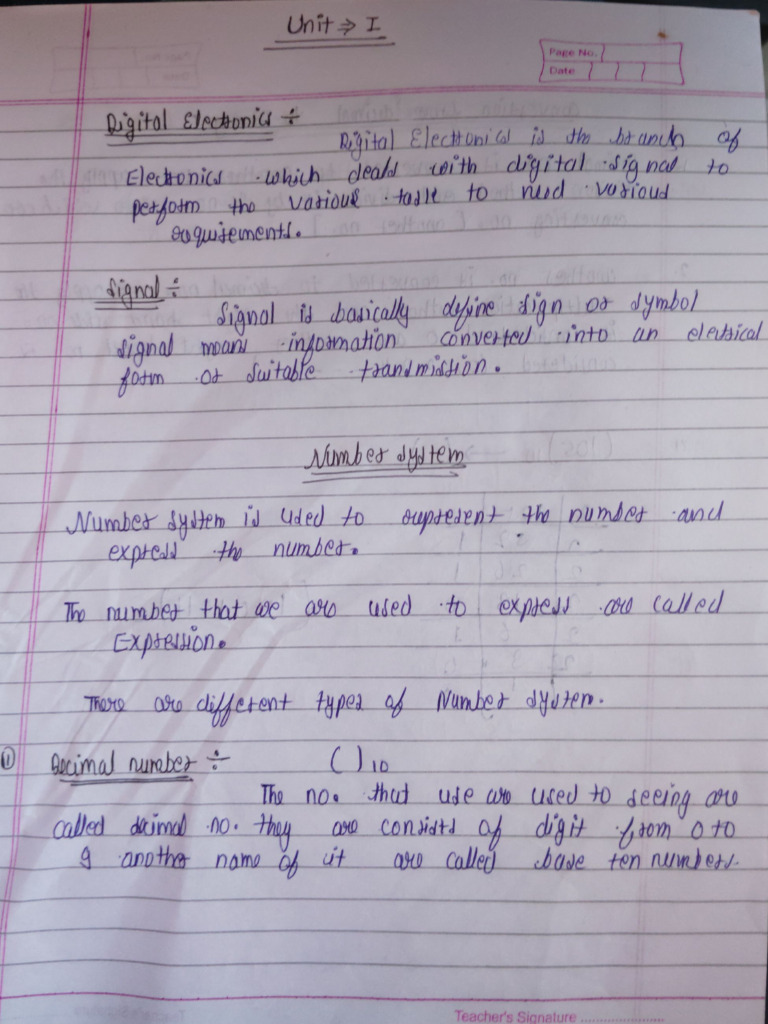 Unit ⇒ I
Page No.
Date
Digital Electronics ÷
Digital Electronics is the branch of
Electronics which deals with digital signal to
perform the various task to need various
requirements.
Signal ÷
Signal is basically define sign or symbol
signal means information converted into an eletrical
form or suitable transmission.
Number system
Number system is used to represent the number and
express the number.
The number that we are used to express are called
Expression.
There are different types of Number system.
① Decimal number ÷ ( )10
The no. that use are used to seeing are
called decimal no. they are consists of digit from 0 to
9 another name of it are called base ten numbers.
Teacher's Signature